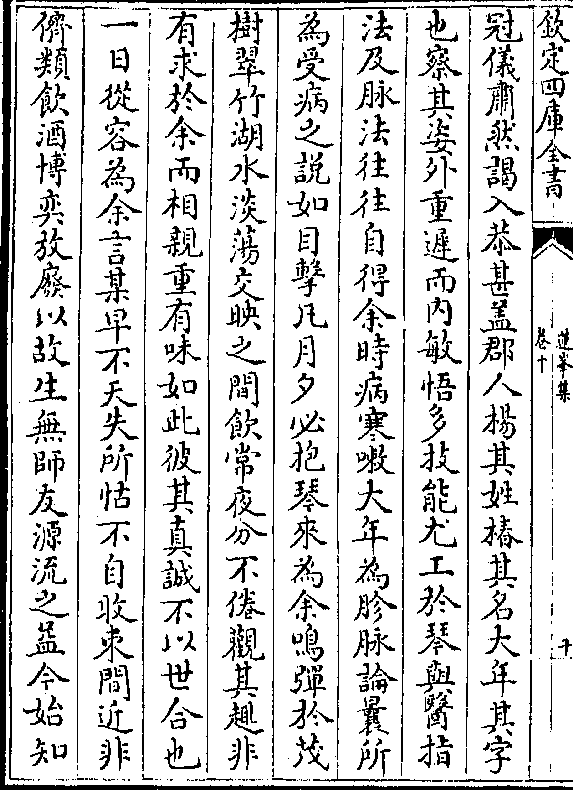 欽定四庫全書
蓮峯集
卷十
十
冠儀肅然謁入恭甚蓋郡人楊其姓椿其名大年其字
也察其姿外重遲而内敏悟多技能尤工於琴與醫指
法及脉法往往自得余時病寒嗽大年為胗脉論曩所
為受病之説如目擊凡月夕必抱琴來為余鳴彈於茂
樹翠竹湖水淡蕩交映之間飲常夜分不倦觀其趣非
有求於余而相親重有味如此彼其真誠不以世合也
一日從容為余言某早不天失所怙不自收束間近非
儕類飲酒博奕放廢以故生無師友源流之益今始知